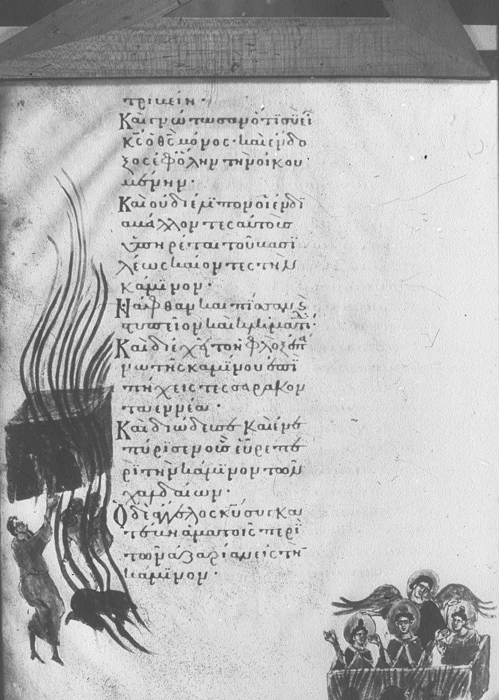 τριβείη·
Καὶ γνώτωσαν ὅτι σὺ εἶ
κς ὁ θς μόνος· καὶ ἔνδο
ξος ἐφ ὅλην τὴν οἰκου
μένην·
Καὶ οὐ διέλιπον οἱ ἐμ
βάλλοντες αὐτοὺς
ὑπηρέται τοῦ βασι
λέως καίοντες τὴν
κάμινον·
Νάφθαν καὶ πίσσαν κς
στυπίον καὶ κληματί·
Καὶ διεχεῖτο ἡ φλὸξ ἐπά
νω τῆς καμίνου ἐπὶ
πήχεις τεσσαράκον
τα ἐννέα·
Καὶ διώδευσε καὶ ἐνε
πύρισεν οὓς εὗρε πε
ρὶ τὴν κάμινον τῶν
χαλδαίων·
Ὁ δὲ ἄγγελος κυ συγκα
τέβη ἅμα τοῖς περὶ
τὸν ἀζαρίαν εἰς τὴν
κάμινον·